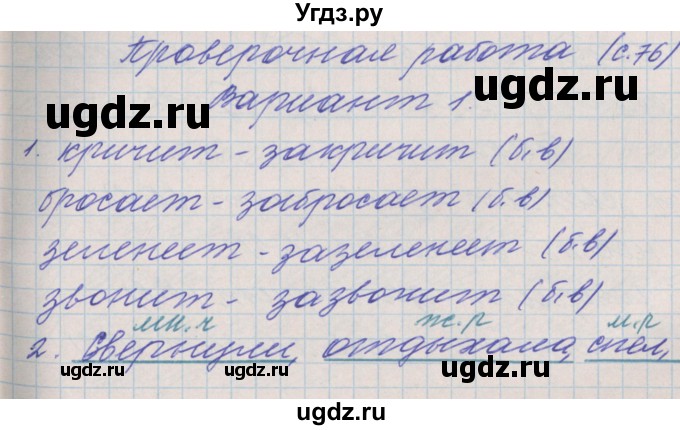 Угдз.ру
Проверочная работа (с.76)
ugdz.ru ugdz.ru
Вариант 1.
1. кричит - закричит (б.в)
бросает - забросает (б.в)
ugdz.ru ugdz.ru
зеленеет - зазеленеет (б.в)
звонит - зазвонит (б.в)
мн.ч ж.р м.р
2. Свернули, отдыхала, спел,
ugdz.ru ugdz.ru
ugdz.ru